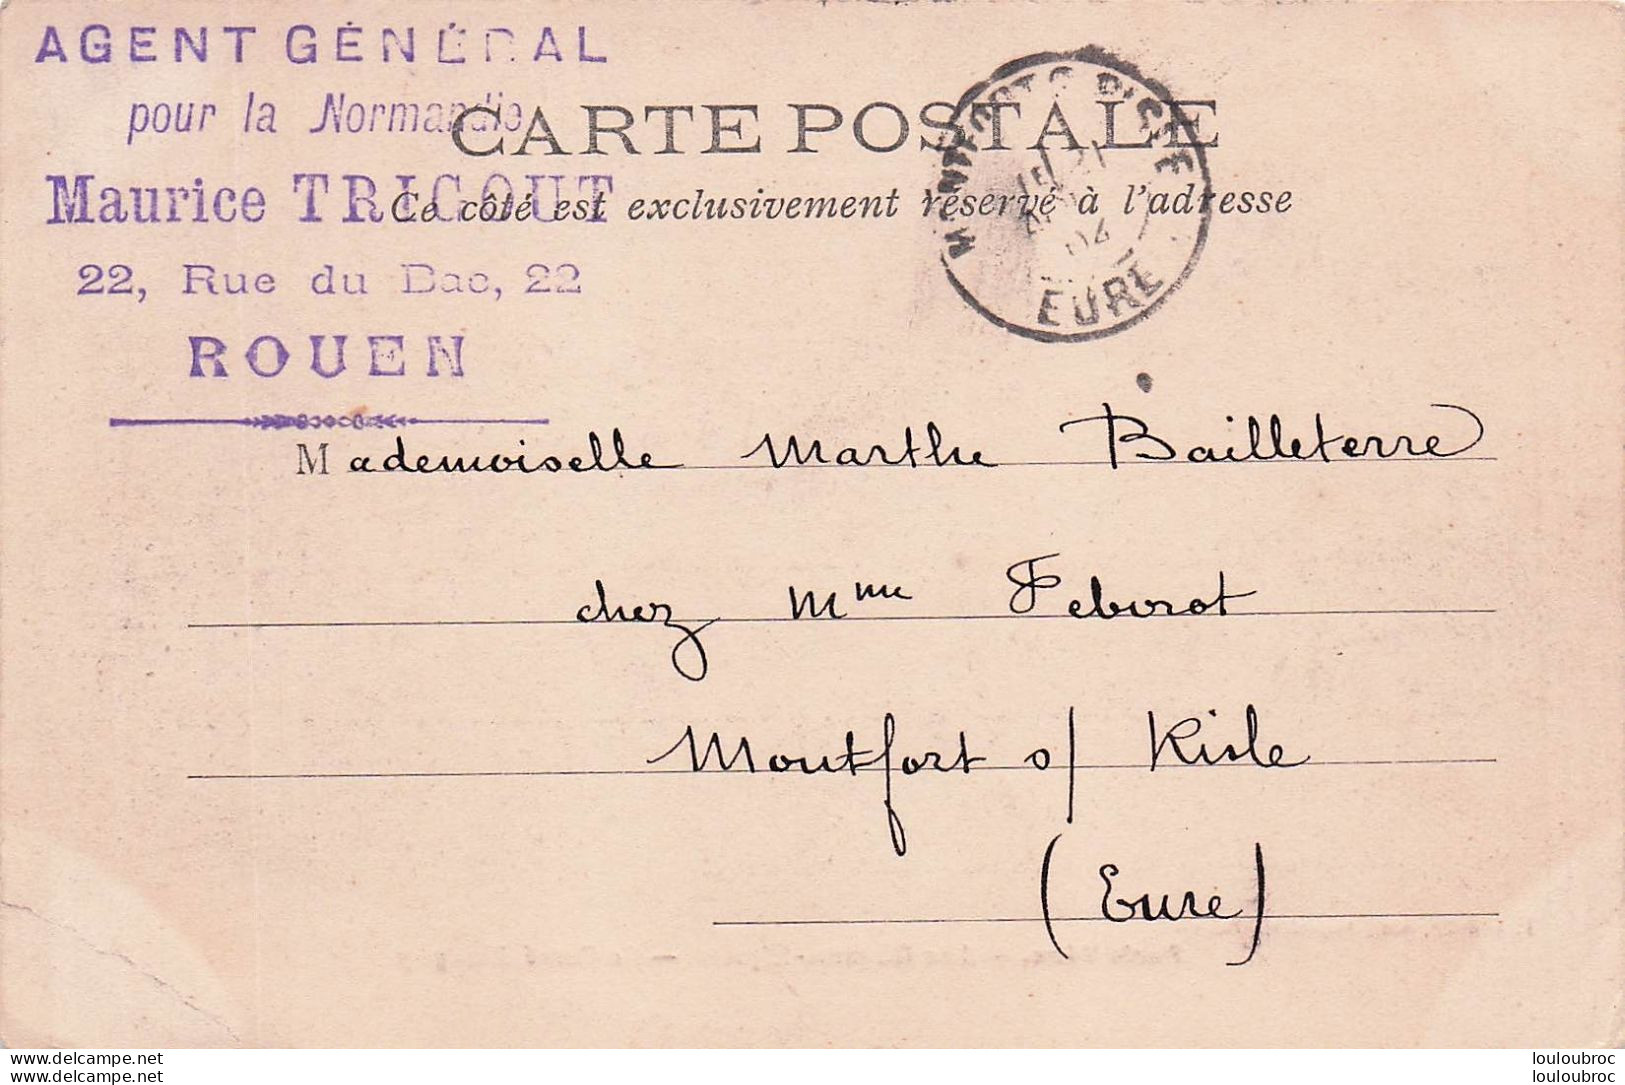 AGENT GÉNÉRAL
pour la Normandie
CARTE POSTALE
Maurice TRICOUT
Ce côté est exclusivement réservé à l'adresse
22, Rue du Bac, 22
ROUEN
04
EURE
Mademoiselle Marthe Bailleterre
chez Mme Feburot
Montfort s/ Risle
(Eure)
www.delcampe.net
louloubroc
www.delcampe.net
louloubroc